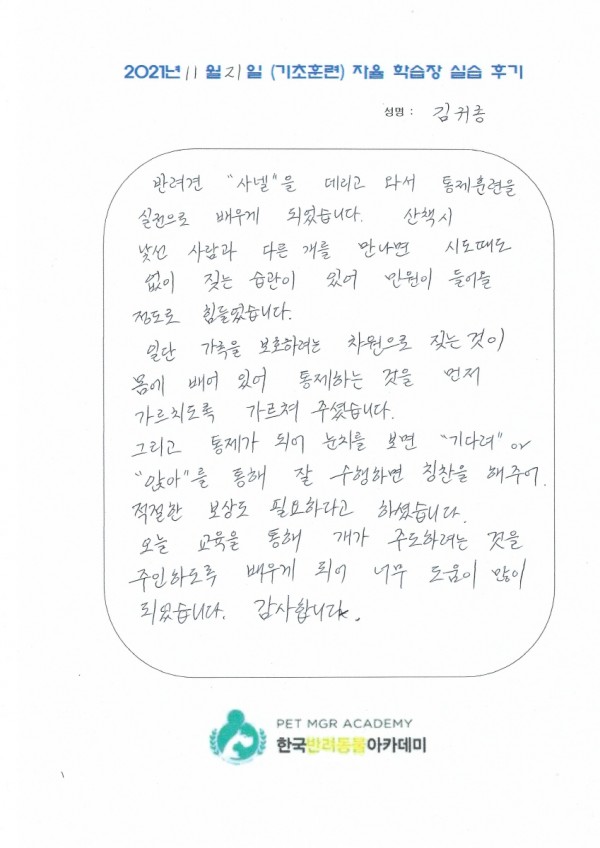 2021년 11월 21일 (기초훈련) 자율 학습장 실습 후기
성명 : 김귀종
반려견 "샤넬"을 데리고 와서 통제훈련을
실전으로 배우게 되었습니다. 산책시
낯선 사람과 다른 개를 만나면 시도때도
없이 짖는 습관이 있어 민원이 들어올
정도로 힘들었습니다.
일단 가족을 보호하려는 차원으로 짖는 것이
몸에 배어 있어 통제하는 것을 먼저
가르치도록 가르쳐 주셨습니다.
그리고 통제가 되어 눈치를 보면 "기다려" or
"앉아"를 통해 잘 수행하면 칭찬을 해주어.
적절한 보상도 필요하다고 하셨습니다.
오늘 교육을 통해 개가 주도하려는 것을
주인하도록 배우게 되어 너무 도움이 많이
되었습니다. 감사합니다.
PET MGR ACADEMY
한국반려동물아카데미